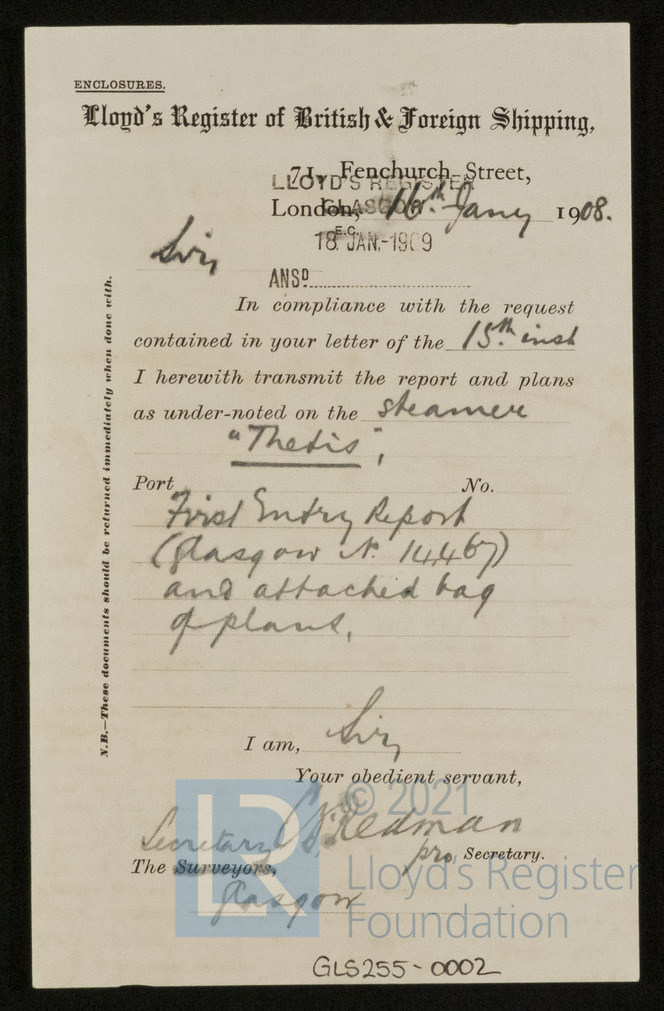 ENCLOSURES.
Lloyd's Register of British & Foreign Shipping,
71, Fenchurch Street,
LLOYD'S REGISTER
London, 16th Jany 1908.
GLASGOW
E.C.
18 JAN.-1909
Sir,
ANSD
In compliance with the request
contained in your letter of the 15th inst
I herewith transmit the report and plans
as under-noted on the steamer
"Thetis",
Port No.
First Entry Report
(Glasgow No. 14467)
and attached bag
of plans.
I am, Sir,
Your obedient servant,
Redman
pro Secretary.
Secretary
The Surveyors,
Glasgow
N.B.—These documents should be returned immediately when done with.
LR
© 2021
Lloyd's Register
Foundation
GLS255-0002